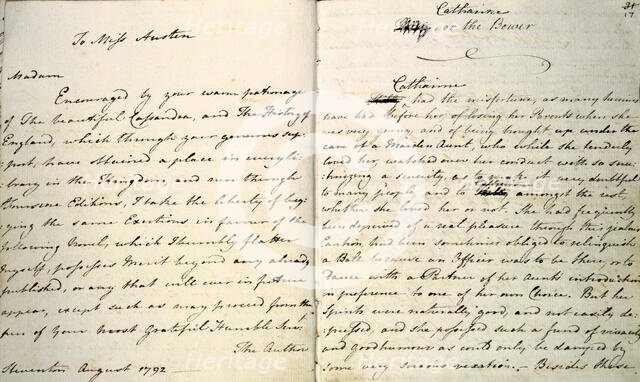 To Miss Austen
Madam
Encouraged by your warm patronage
of The beautiful Cassandra, and The History of
England, which through your generous sup-
port, have obtained a place in every li-
brary in the Kingdom, and run through
threescore Editions, I take the liberty of beg-
ging the same Exertions in favour of the
following Novel, which I humbly flatter
myself, possesses Merit beyond any already
published, or any that will ever in future
appear, except such as may proceed from the
pen of Your Most Grateful Humble Serv.
The Author
Steventon August 1792 —
Catharine
or the Bower
Catharine
had the misfortune, as many heroines
have had before her, of losing her Parents when she
was very young, and of being brought up under the
care of a Maiden Aunt, who while she tenderly
loved her, watched over her conduct with so scru-
tinizing a severity, as to make it very doubtful
to many people, and to Catharine amongst the rest,
whether she loved her or not. She had frequently
been deprived of a real pleasure through this jealous
Caution, had been sometimes obliged to relinquish
a Ball because an Officer was to be there, or to
dance with a Partner of her Aunts introduction
in preference to one of her own Choice. But her
Spirits were naturally good, and not easily de-
pressed, and she possessed such a fund of vivacity
and good humour as could only be damped by
some very serious vexation. — Besides these
heritage
Heritage
Images